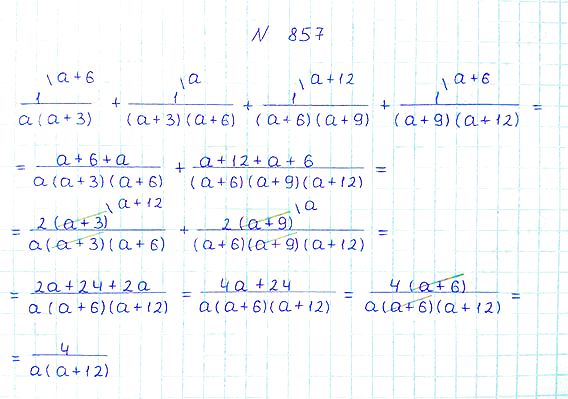 N 857
1\a+6/a(a+3) + 1\a/(a+3)(a+6) + 1\a+12/(a+6)(a+9) + 1\a+6/(a+9)(a+12) =
= a+6+a/a(a+3)(a+6) + a+12+a+6/(a+6)(a+9)(a+12) =
= 2(a+3)\a+12/a(a+3)(a+6) + 2(a+9)\a/(a+6)(a+9)(a+12) =
= 2a+24+2a/a(a+6)(a+12) = 4a+24/a(a+6)(a+12) = 4(a+6)/a(a+6)(a+12) =
= 4/a(a+12)